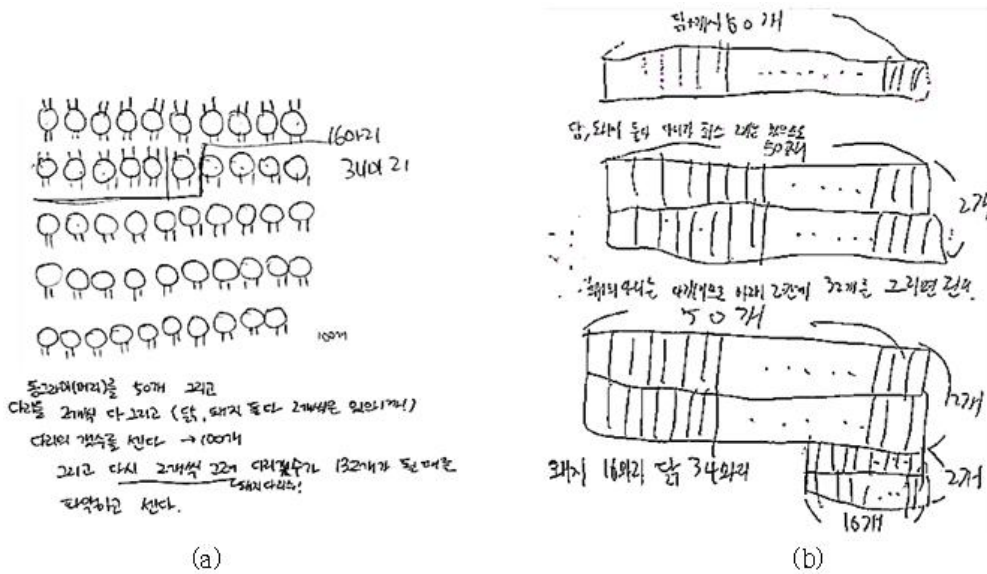 16마리
34마리
100개
동그라미(머리)를 50개 그리고
다리를 2개씩 다 그리고 (닭, 돼지 둘다 2개씩은 있으니까!)
다리의 갯수를 센다 → 100개
그리고 다시 2개씩 그려 다리갯수가 132개가 될 때를
돼지다리수!
파악하고 센다.
(a)
50개
닭, 돼지 둘다 다리가 최소 2개는 있으므로
50개
2개
다리는 4개이므로 아래 2칸에 32개를 그리면 된다.
50개
2개
돼지 16마리 닭 34마리
2개
16개
(b)